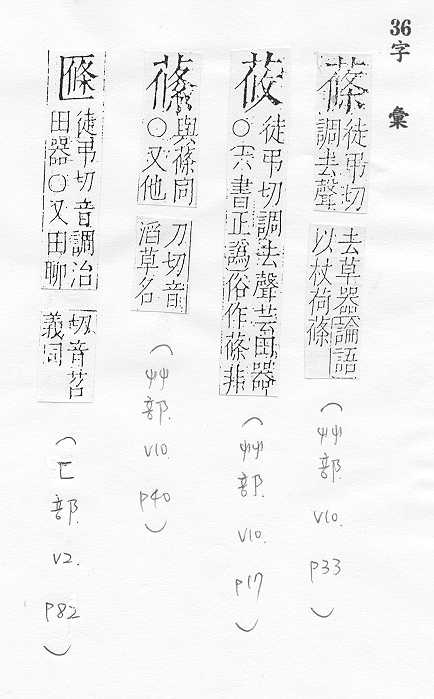 36字彙
蓧
徒弔切
調去聲
去草器論語
以杖荷蓧
(艸部. V10. P33)
莜
徒弔切調去聲芸田器
○六書正譌俗作蓧非
(艸部. V10. P17)
蓧
與蓧同
○又他
刀切音
滔草名
(艸部. V10. P40)
匫
徒弔切音調治
田器○又田聊
切音苕
義同
(匸部. V2. P82)